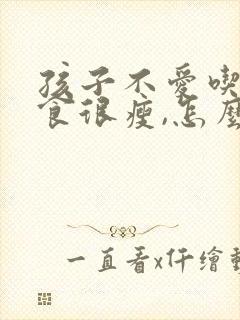 孩子不愛喫
食很瘦,怎麼
一直看x仟繪動